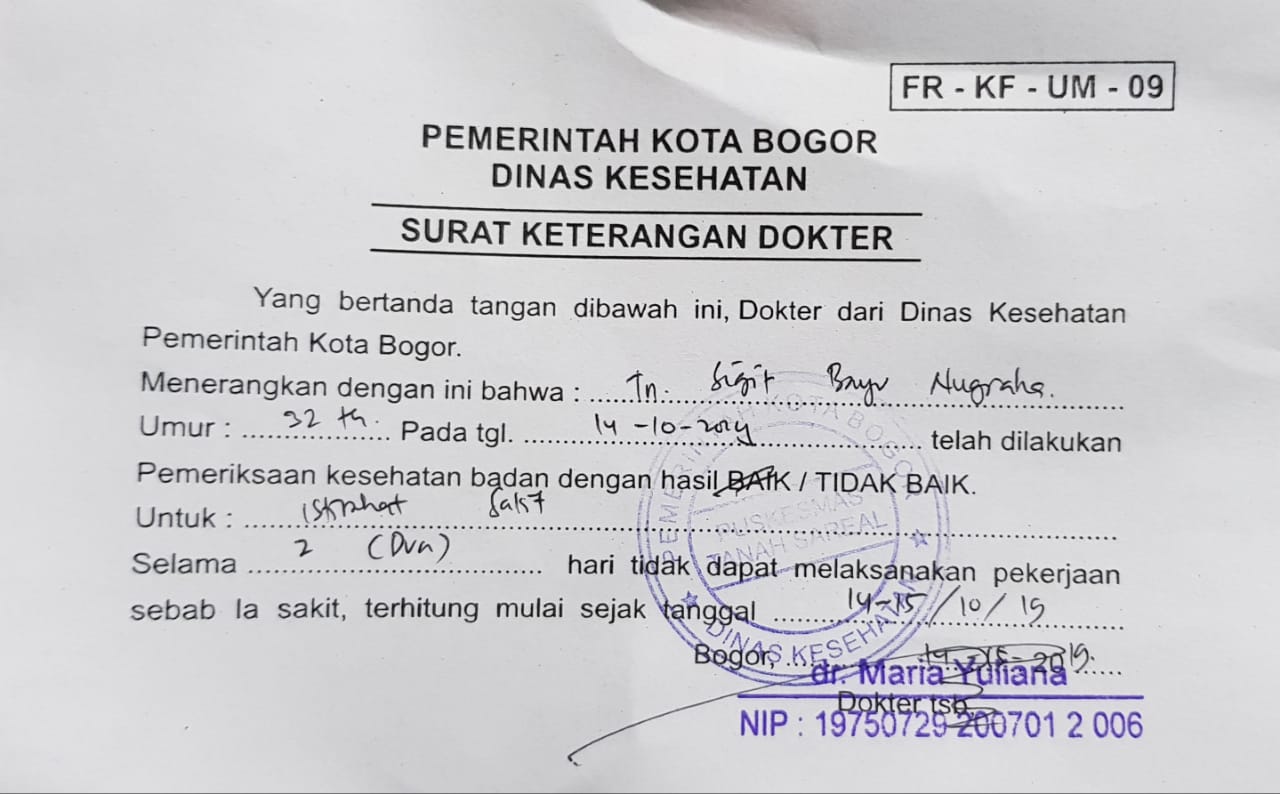 FR - KF - UM - 09
PEMERINTAH KOTA BOGOR
DINAS KESEHATAN
SURAT KETERANGAN DOKTER
Yang bertanda tangan dibawah ini, Dokter dari Dinas Kesehatan
Pemerintah Kota Bogor.
Menerangkan dengan ini bahwa : Tn. Sigit Bayu Nugraha.
Umur : 32 th. Pada tgl. 14-10-2019 telah dilakukan
Pemeriksaan kesehatan badan dengan hasil BAIK / TIDAK BAIK.
Untuk : istrahat sakit
Selama 2 (Dua) hari tidak dapat melaksanakan pekerjaan
sebab Ia sakit, terhitung mulai sejak tanggal 14-15/10/19
Bogor, 2019.
dr. Maria Yuliana
Dokter tsb
NIP : 19750729 200701 2 006
PEMERINTAH KOTA BOGOR
PUSKESMAS
TANAH SAREAL
DINAS KESEHATAN